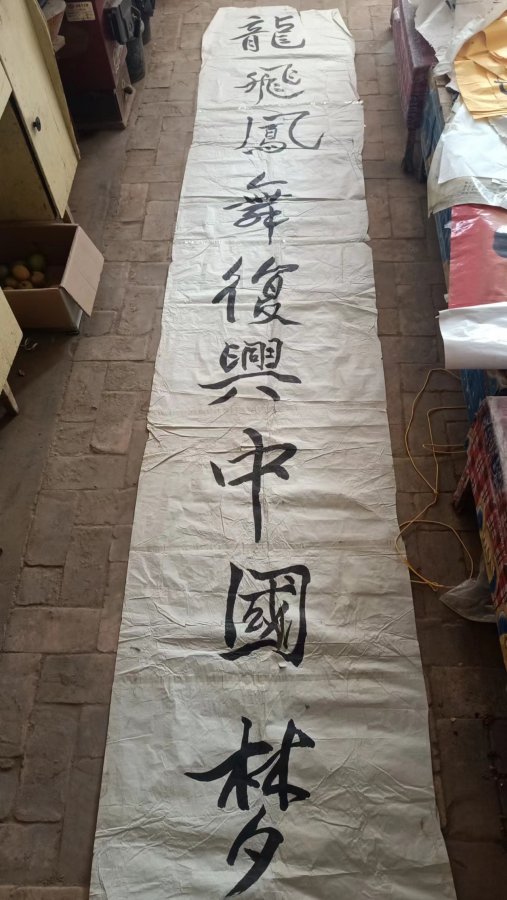 龍飛鳳舞復興中國梦